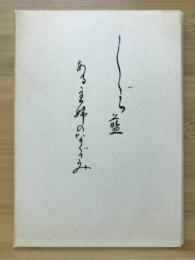 しじら藍
ある主婦のなぐさみ